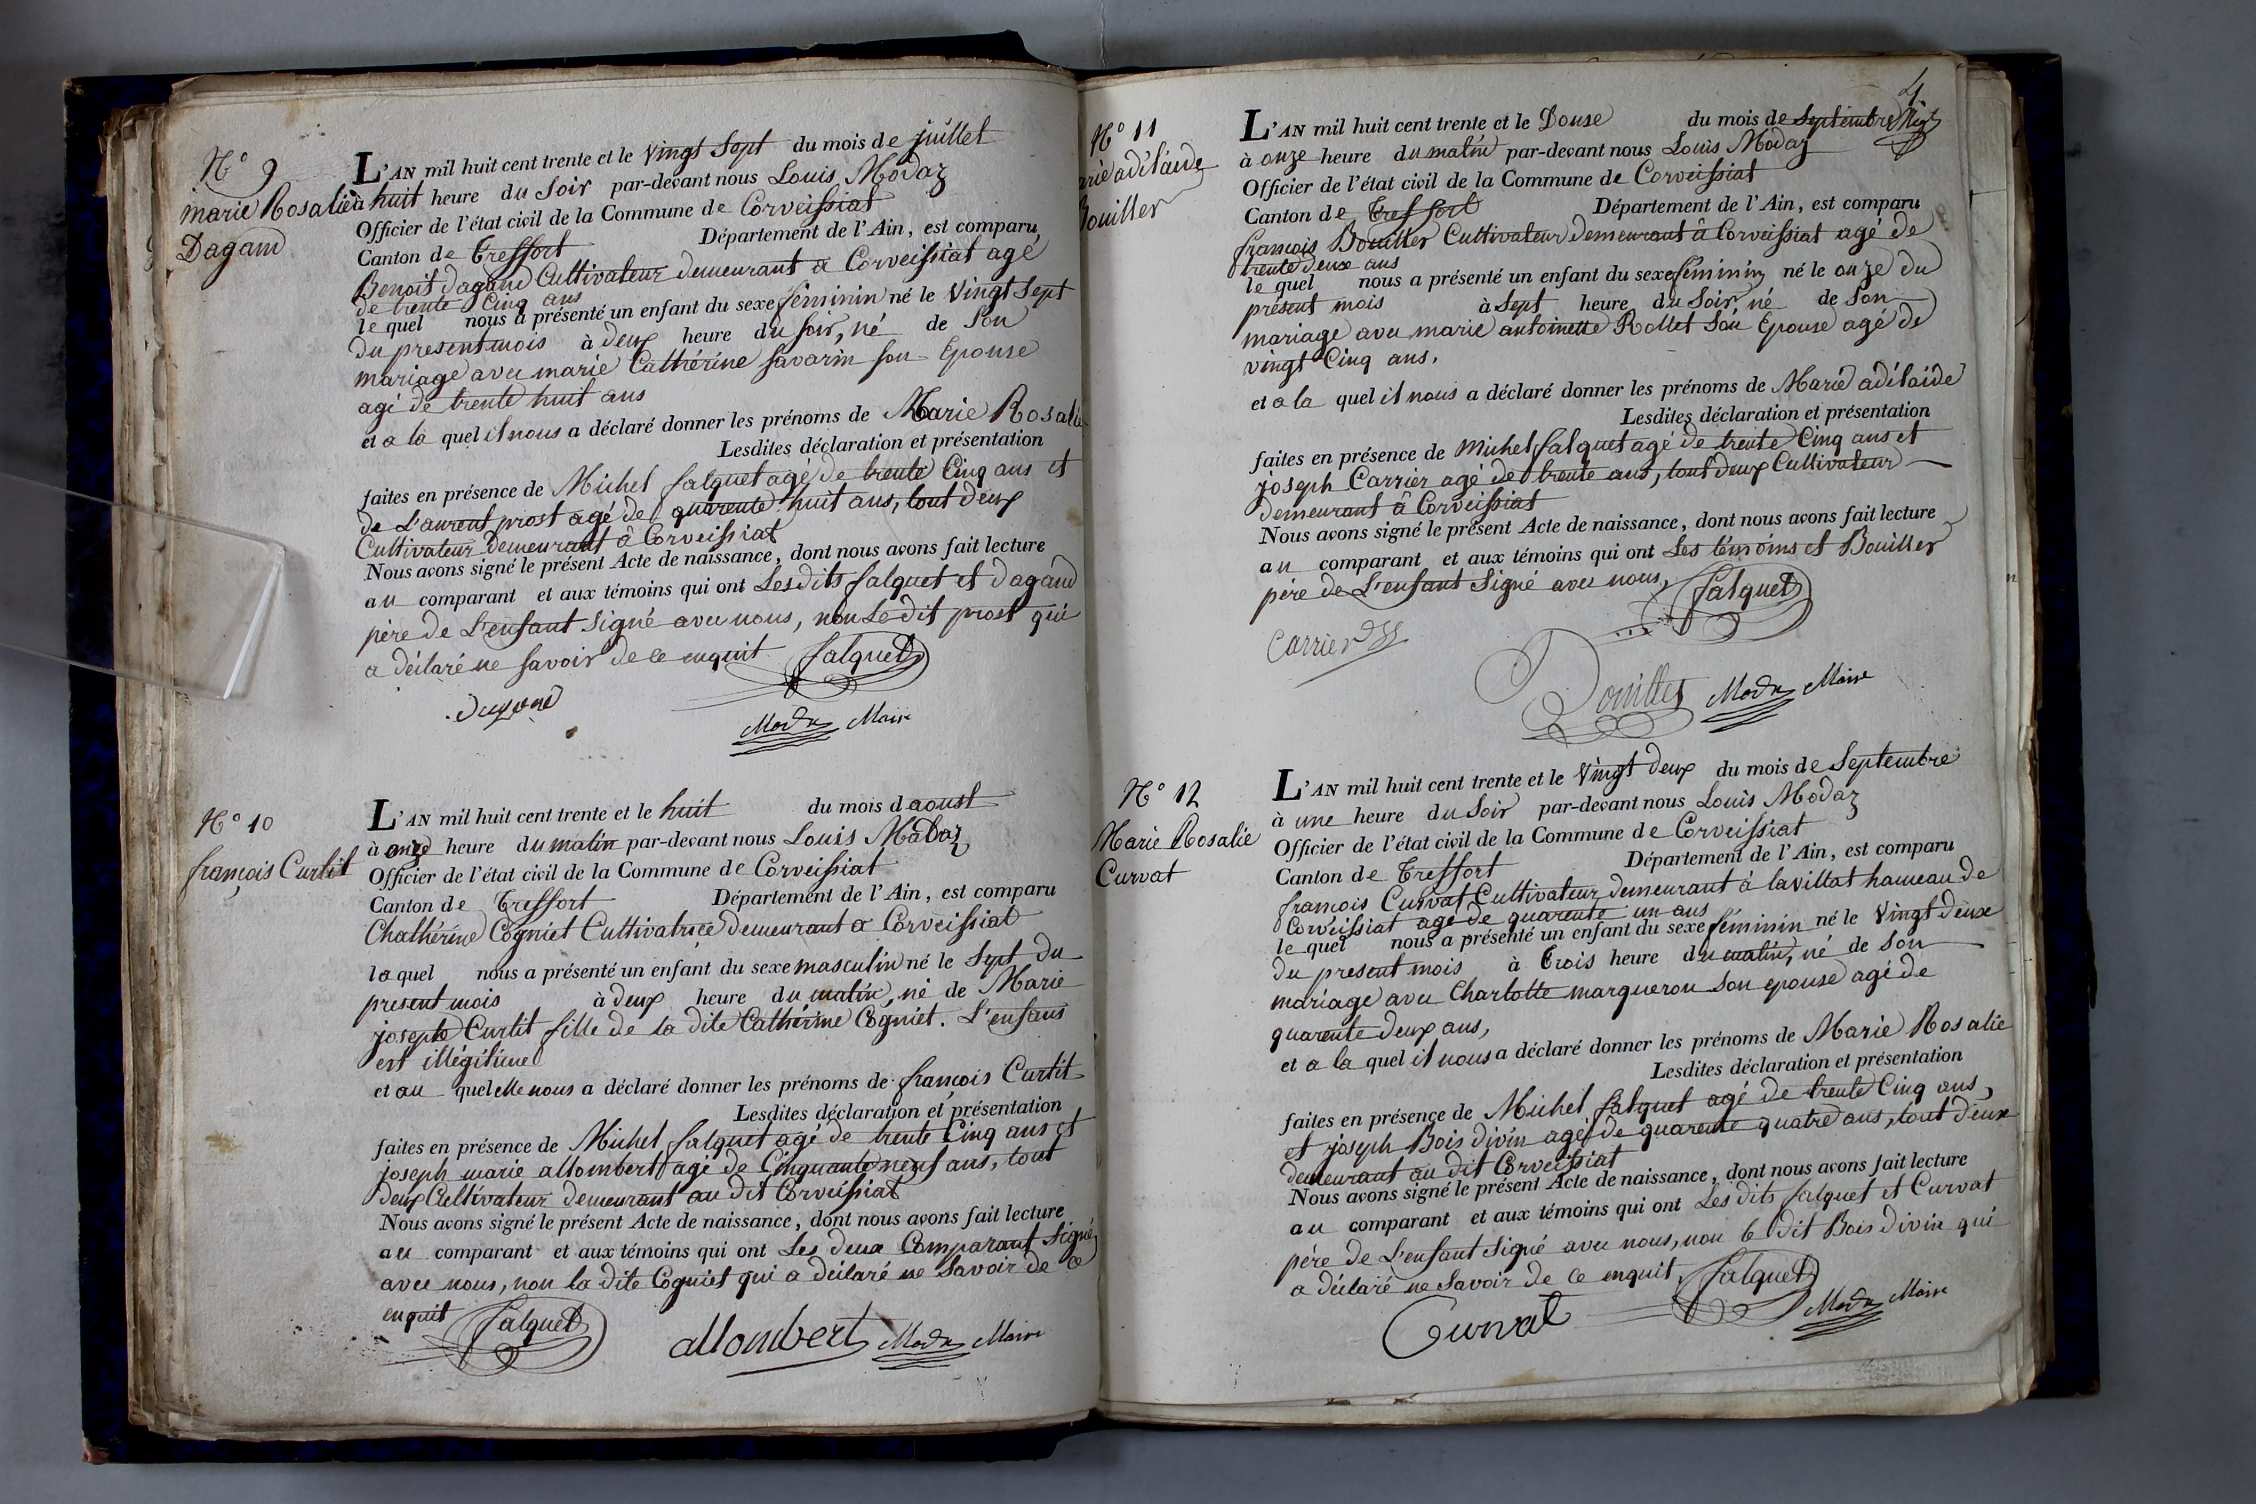 N° 9
marie Rosalie
Dagand
L'AN mil huit cent trente et le vingt Sept du mois de juillet
à huit heure du Soir par-devant nous Louis Modaz
Officier de l'état civil de la Commune de Corveissiat
Canton de Treffort Département de l'Ain, est comparu
Benoit dagand Cultivateur demeurant a Corveissiat agé
de trente Cinq ans
le quel nous a présenté un enfant du sexe féminin né le Vingt Sept
du present mois à deux heure du soir, né de Son
mariage avec marie Cathérine Savarin son Epouse
agé de trente huit ans
et a la quel il nous a déclaré donner les prénoms de Marie Rosalie
Lesdites déclaration et présentation
faites en présence de Michel falquet agé de trente Cinq ans et
de L'aurent prost agé de quarente huit ans, tout deux
Cultivateur demeurant à Corveissiat
Nous avons signé le présent Acte de naissance, dont nous avons fait lecture
au comparant et aux témoins qui ont Lesdits falquet et dagand
père de L'enfant Signé avec nous, non Le dit prost qui
a déclaré ne savoir de ce enquit falquet
dagand
Modaz Maire
N° 10
françois Curtit
L'AN mil huit cent trente et le huit du mois d aoust
à onze heure du matin par-devant nous Louis Modaz
Officier de l'état civil de la Commune de Corveissiat
Canton de Treffort Département de l'Ain, est comparu
Chathérine Cogniet Cultivatrice demeurant a Corveissiat
la quel nous a présenté un enfant du sexe masculin né le Sept du
present mois à deux heure du matin, né de Marie
josephe Curtit fille de la dite Cathérine Cogniet. L'enfans
est illégitime
et au quel elle nous a déclaré donner les prénoms de françois Curtit
Lesdites déclaration et présentation
faites en présence de Michel falquet agé de trente Cinq ans et
joseph marie allombert agé de Cinquante neuf ans, tout
deux Cultivateur demeurant au dit Corveissiat
Nous avons signé le présent Acte de naissance, dont nous avons fait lecture
au comparant et aux témoins qui ont Les deux Comparant Signé
avec nous, non la dite Cogniet qui a déclaré ne Savoir de ce
enquit falquet
allombert Modaz Maire
4
N° 11
arie adélaide
Bouiller
L'AN mil huit cent trente et le Douse du mois de Septembre
à onze heure du matin par-devant nous Louis Modaz
Officier de l'état civil de la Commune de Corveissiat
Canton de Treffort Département de l'Ain, est comparu
françois Bouiller Cultivateur demeurant à Corveissiat agé de
trente deux ans
le quel nous a présenté un enfant du sexe féminin né le onze du
présent mois à Sept heure du Soir, né de Son
mariage avec marie antoinette Rollet Son Epouse agé de
vingt Cinq ans.
et a la quel il nous a déclaré donner les prénoms de Marie adélaide
Lesdites déclaration et présentation
faites en présence de Michel falquet agé de trente Cinq ans et
joseph Carrier agé de trente ans, tout deux Cultivateur
demeurant â Corveissiat
Nous avons signé le présent Acte de naissance, dont nous avons fait lecture
au comparant et aux témoins qui ont Les témoins et Bouiller
père de L'enfant Signé avec nous, falquet
Carrier
Bouiller Modaz Maire
N° 12
Marie Rosalie
Curvat
L'AN mil huit cent trente et le Vingt deux du mois de Septembre
à une heure du Soir par-devant nous Louis Modaz
Officier de l'état civil de la Commune de Corveissiat
Canton de Treffort Département de l'Ain, est comparu
françois Curvat Cultivateur demeurant à lavillat hameau de
Corveissiat agé de quarente un ans
le quel nous a présenté un enfant du sexe féminin né le Vingt deux
du present mois à Trois heure du matin, né de Son
mariage avec Charlotte marqueron Son epouse agé de
quarente deux ans,
et a la quel il nous a déclaré donner les prénoms de Marie Rosalie
Lesdites déclaration et présentation
faites en présence de Michel falquet agé de trente Cinq ans,
et joseph Bois divin agé de quarente quatre ans, tout deux
demeurant au dit Corveissiat
Nous avons signé le présent Acte de naissance, dont nous avons fait lecture
au comparant et aux témoins qui ont Lesdits falquet et Curvat
père de L'enfant Signé avec nous, non le dit Bois divin qui
a déclaré ne Savoir de ce enquit, falquet
Curvat Modaz Maire